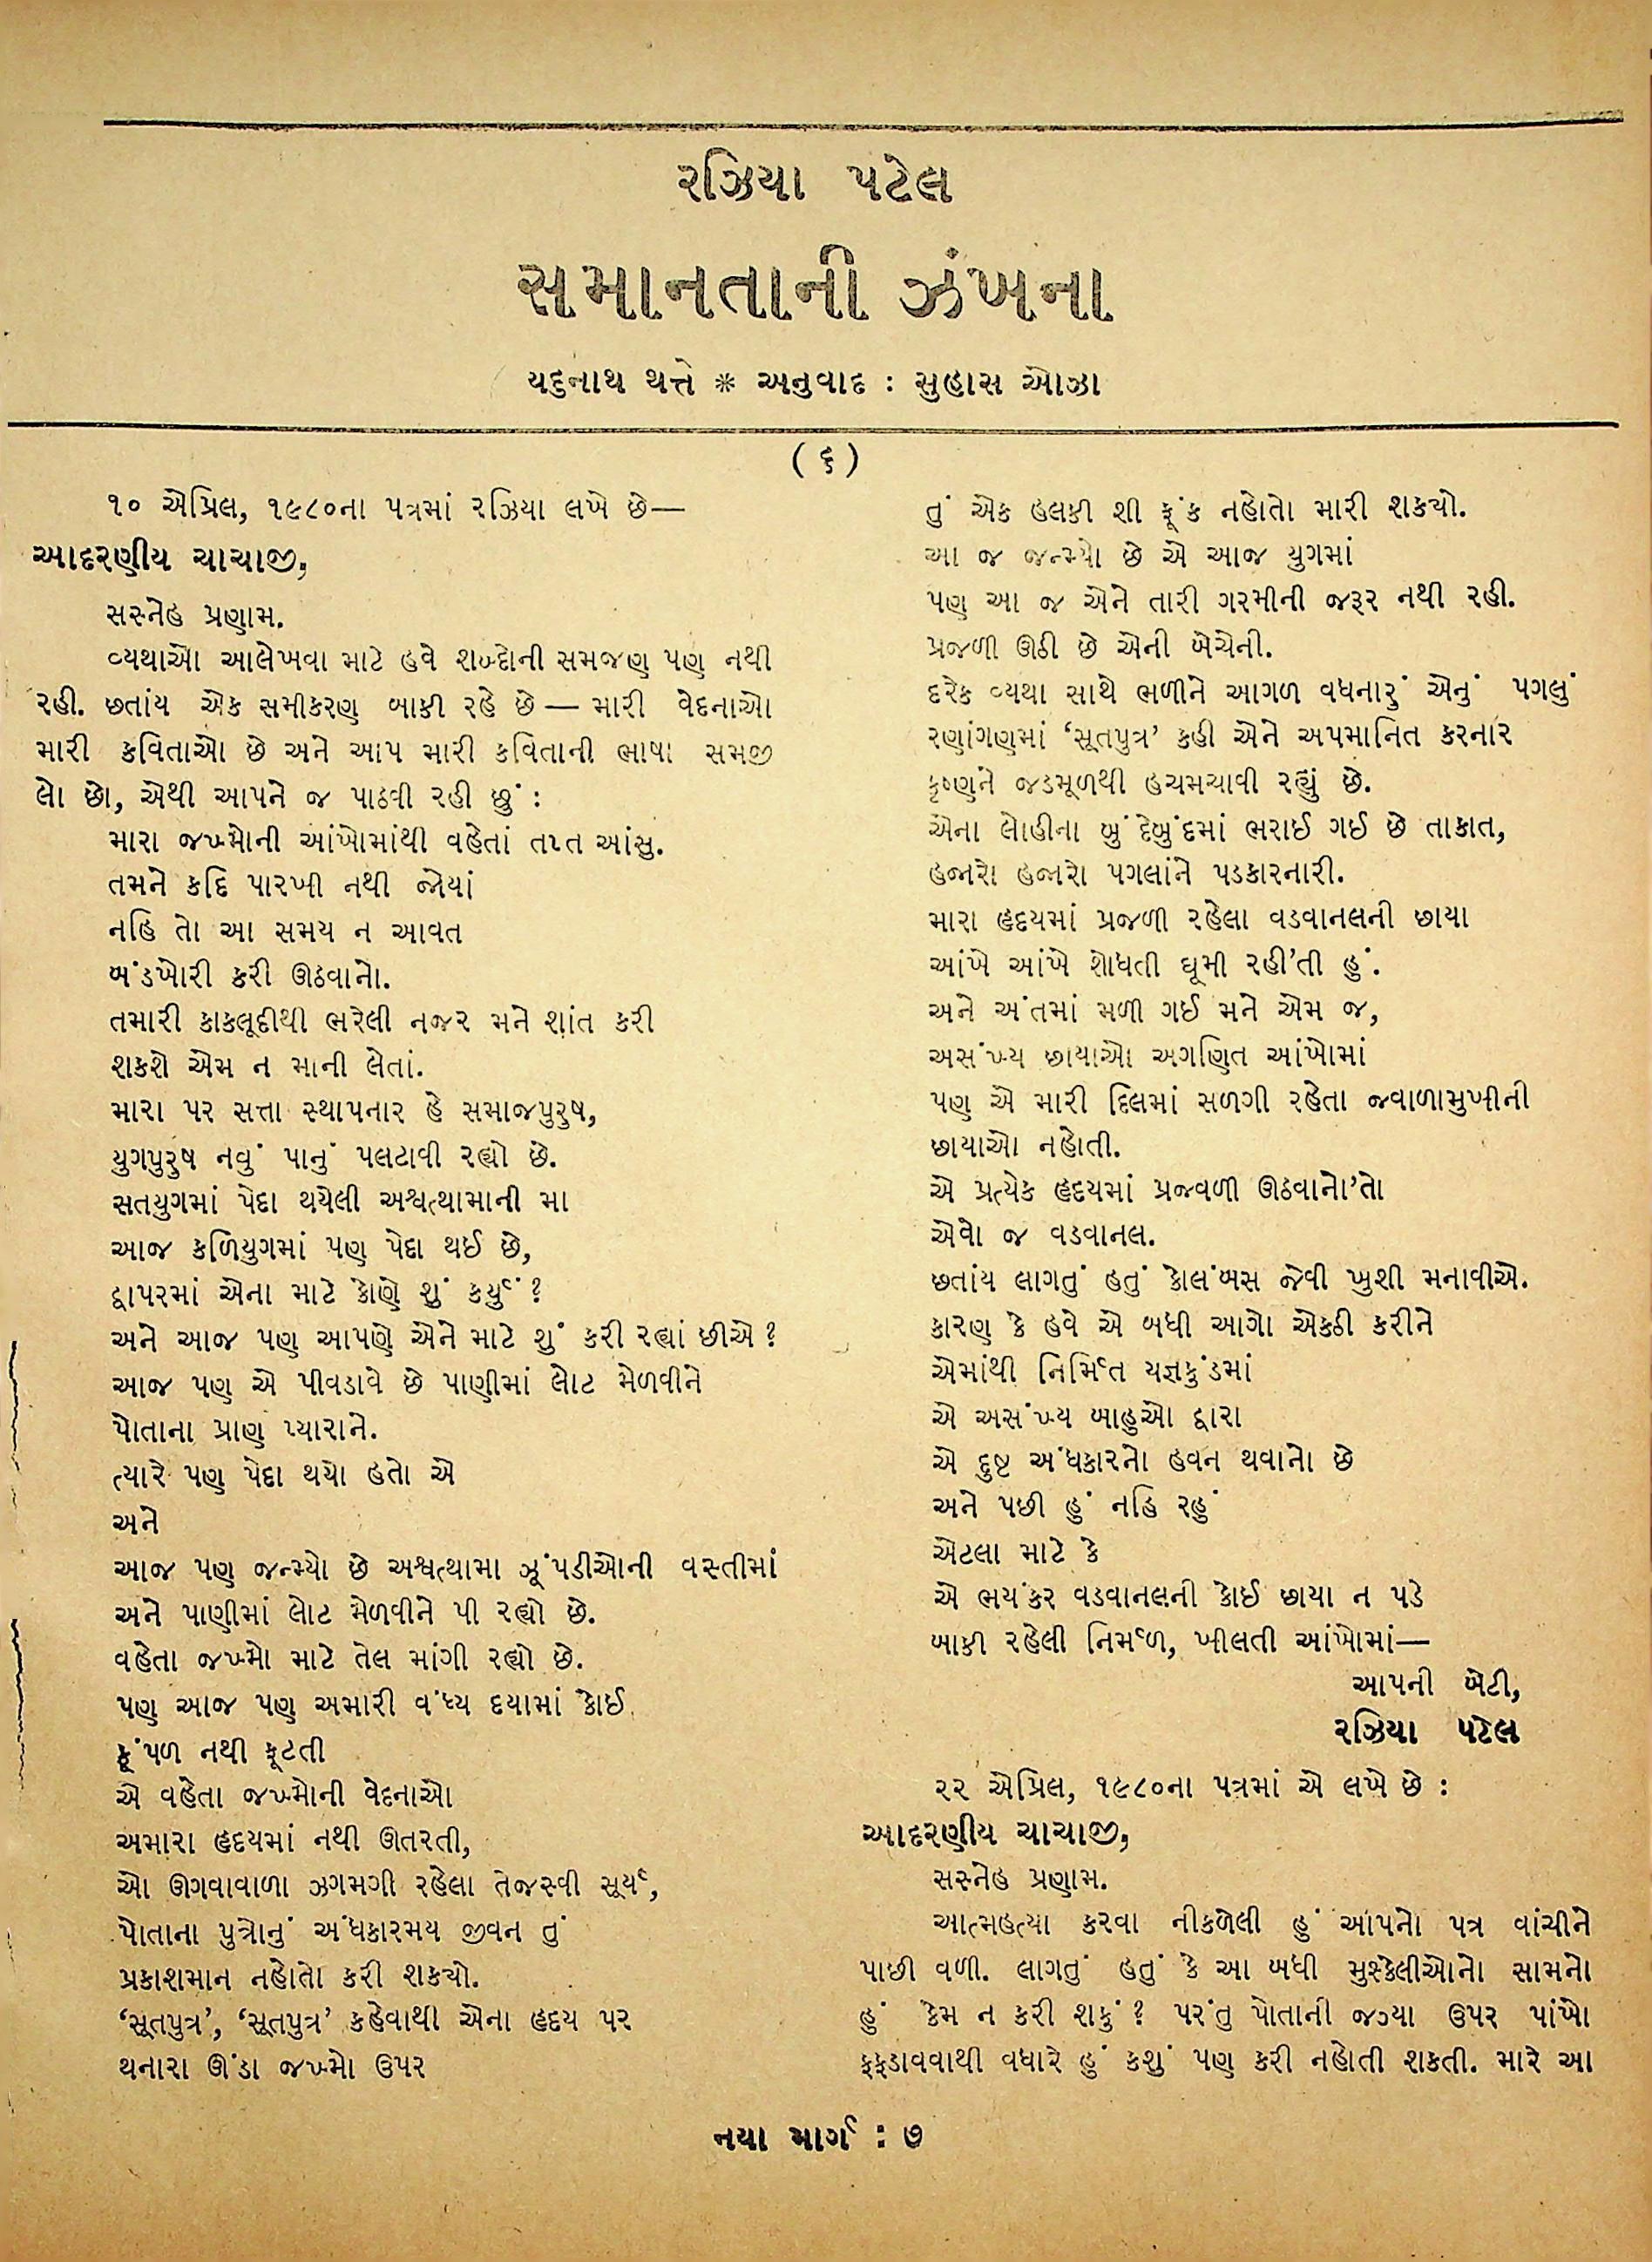 રઝિયા પટેલ
સમાનતાની ઝંખના
યદુનાથ થત્તે * અનુવાદ : સુહાસ ઓઝા
(૬)
૧૦ એપ્રિલ, ૧૯૮૦ના પત્રમાં રઝિયા લખે છે—
આદરણીય ચાચાજી,
સસ્નેહ પ્રણામ.
વ્યથાઓ આલેખવા માટે હવે શબ્દોની સમજણ પણ નથી
રહી. છતાંય એક સમીકરણ બાકી રહે છે — મારી વેદનાઓ
મારી કવિતાઓ છે અને આપ મારી કવિતાની ભાષા સમજી
લો છો, એથી આપને જ પાઠવી રહી છું :
મારા જખ્મોની આંખોમાંથી વહેતાં તપ્ત આંસુ.
તમને કદિ પારખી નથી જોયાં
નહિ તો આ સમય ન આવત
બંડખોરી કરી ઊઠવાનો.
તમારી કાકલૂદીથી ભરેલી નજર મને શાંત કરી
શકશે એમ ન માની લેતાં.
મારા પર સત્તા સ્થાપનાર હે સમાજપુરુષ,
યુગપુરુષ નવું પાનું પલટાવી રહ્યો છે.
સતયુગમાં પેદા થયેલી અશ્વત્થામાની મા
આજ કળિયુગમાં પણ પેદા થઈ છે,
દ્વાપરમાં એના માટે કોણે શું કર્યું ?
અને આજ પણ આપણે એને માટે શું કરી રહ્યાં છીએ ?
આજ પણ એ પીવડાવે છે પાણીમાં લોટ મેળવીને
પોતાના પ્રાણ પ્યારાને.
ત્યારે પણ પેદા થયો હતો એ
અને
આજ પણ જન્મ્યો છે અશ્વત્થામા ઝૂંપડીઓની વસ્તીમાં
અને પાણીમાં લોટ મેળવીને પી રહ્યો છે.
વહેતા જખ્મો માટે તેલ માંગી રહ્યો છે.
પણ આજ પણ અમારી વંધ્ય દયામાં કોઈ
કૂંપળ નથી ફૂટતી
એ વહેતા જખ્મોની વેદનાઓ
અમારા હૃદયમાં નથી ઊતરતી,
ઓ ઊગવાવાળા ઝગમગી રહેલા તેજસ્વી સૂર્ય,
પોતાના પુત્રોનું અંધકારમય જીવન તું
પ્રકાશમાન નહોતો કરી શક્યો.
‘સૂતપુત્ર’, ‘સૂતપુત્ર’ કહેવાથી એના હૃદય પર
થનારા ઊંડા જખ્મો ઉપર
તું એક હલકી શી ફૂંક નહોતો મારી શક્યો.
આ જ જન્મ્યો છે એ આજ યુગમાં
પણ આ જ એને તારી ગરમીની જરૂર નથી રહી.
પ્રજળી ઊઠી છે એની બેચેની.
દરેક વ્યથા સાથે ભળીને આગળ વધનારું એનું પગલું
રણાંગણમાં ‘સૂતપુત્ર’ કહી એને અપમાનિત કરનાર
કૃષ્ણને જડમૂળથી હચમચાવી રહ્યું છે.
એના લોહીના બુંદેબુંદમાં ભરાઈ ગઈ છે તાકાત,
હજારો હજારો પગલાંને પડકારનારી.
મારા હૃદયમાં પ્રજળી રહેલા વડવાનલની છાયા
આંખે આંખે શોધતી ઘૂમી રહી’તી હું.
અને અંતમાં મળી ગઈ મને એમ જ,
અસંખ્ય છાયાઓ અગણિત આંખોમાં
પણ એ મારી દિલમાં સળગી રહેતા જ્વાળામુખીની
છાયાઓ નહોતી.
એ પ્રત્યેક હૃદયમાં પ્રજ્વળી ઊઠવાનો’તો
એવો જ વડવાનલ.
છતાંય લાગતું હતું કોલંબસ જેવી ખુશી મનાવીએ.
કારણ કે હવે એ બધી આગો એકઠી કરીને
એમાંથી નિર્મિત યજ્ઞકુંડમાં
એ અસંખ્ય બાહુઓ દ્વારા
એ દુષ્ટ અંધકારનો હવન થવાનો છે
અને પછી હું નહિ રહું
એટલા માટે કે
એ ભયંકર વડવાનલની કોઈ છાયા ન પડે
બાકી રહેલી નિર્મળ, ખીલતી આંખોમાં—
આપની બેટી,
રઝિયા પટેલ
૨૨ એપ્રિલ, ૧૯૮૦ના પત્રમાં એ લખે છે :
આદરણીય ચાચાજી,
સસ્નેહ પ્રણામ.
આત્મહત્યા કરવા નીકળેલી હું આપનો પત્ર વાંચીને
પાછી વળી. લાગતું હતું કે આ બધી મુશ્કેલીઓનો સામનો
હું કેમ ન કરી શકું ? પરંતુ પોતાની જગ્યા ઉપર પાંખો
ફફડાવવાથી વધારે હું કશું પણ કરી નહોતી શકતી. મારે આ
નયા માર્ગ : ૭